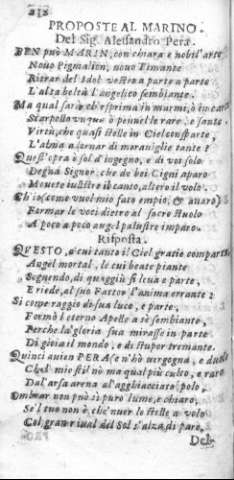 238
PROPOSTE AL MARINO.
Del Sig. Alessandro Pera.
BEN può MARIN, con chiara e nobil'arte
Novo Pigmalion, novo Timante
Ritrar del Idol vostro a parte a parte
L'alta beltà l'angelico sembiante.
Ma qual sarà ch'esprima in marmi, ò in carte
Scarpello unque ò pennel le rare, e sante
Virtù, che quasi stelle in Ciel consparte,
L'alma adornar di meraviglie tante?
Quest'opra è sol d'ingegno, e di voi solo
Degna Signor, che de bei Cigni aparo
Movete illustre il canto, altero il volo.
Ch'io (come vuol mio fato empio, & avaro)
Fermar le voci dietro al sacro stuolo
A poco a poco augel palustre imparo.
Risposta.
QUESTO, a cui tanto il Ciel gratie comparte
Angel mortal, le cui beate piante
Seguendo, di quaggiù si leva e parte,
E riede, al suo Fattor l'anima errante;
Si come raggio de sua luce, e parte,
Formò l'eterno Apelle a sè sembiante,
Perche la gloria sua mirasse in parte
Di gioia il mondo, e di stupor tremante.
Quinci avien PERA (e n'hò vergogna, e duolo
Ch'el mio stil nò ma qual più culto, e raro
Dal'arsa arena al'agghiacciato polo.
Ombrar non può sì puro lume, e chiaro,
Se'l tuo non è, che'n ver lo stelle a volo
Col gran rival del Sol s'alza di paro.
Del